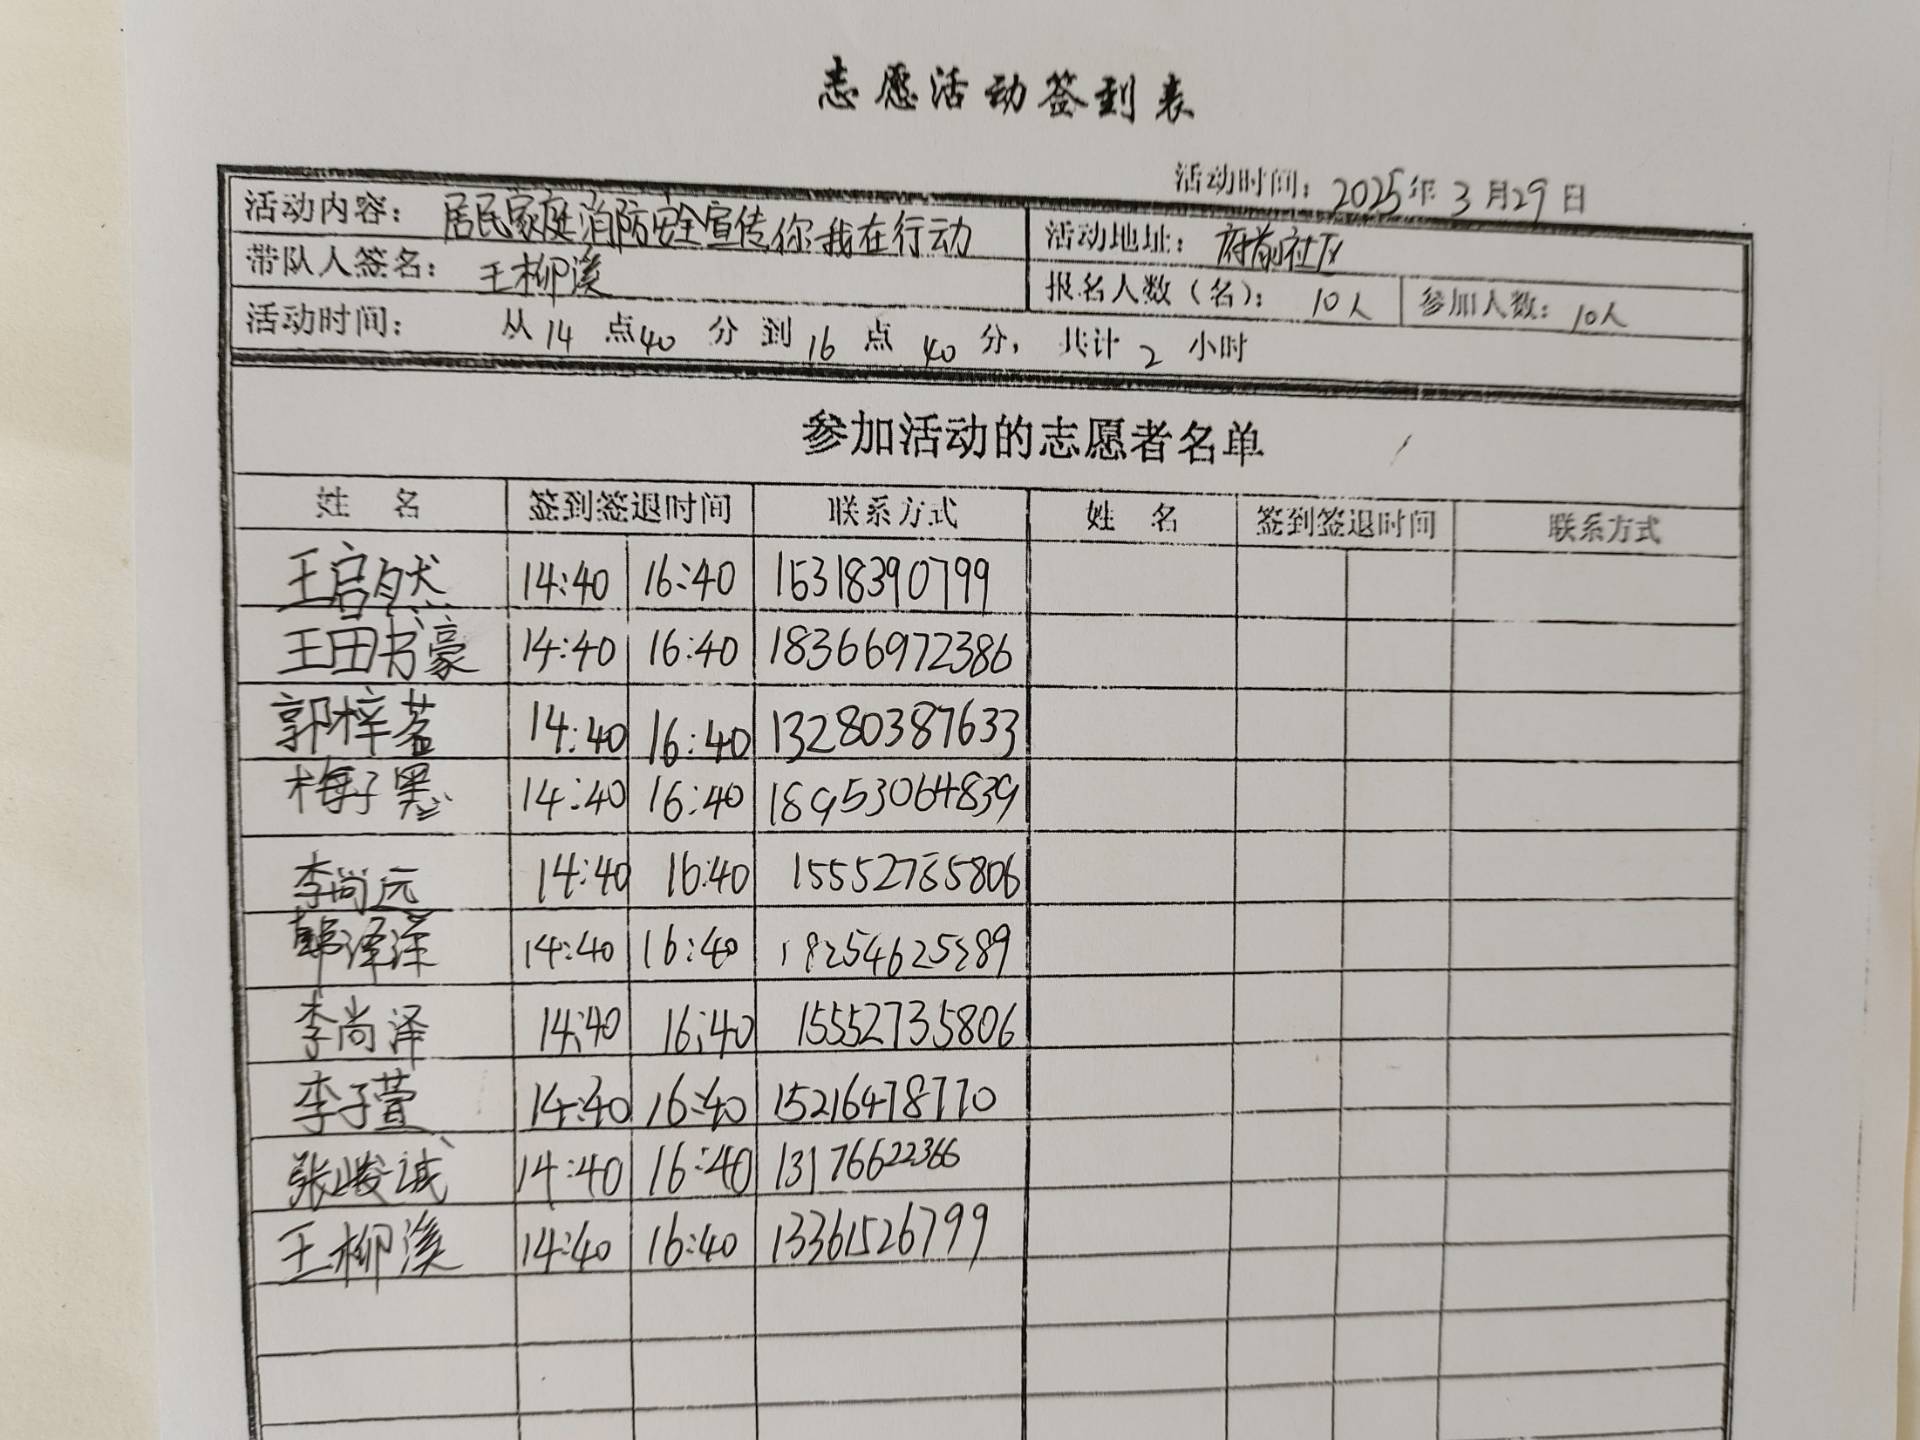 志愿活动签到表
活动时间：2025年3月29日
活动内容：居民家庭消防安全宣传你我在行动 活动地址：府前社区
带队人签名：王柳溪 报名人数（名）：10人 参加人数：10人
活动时间： 从14点40分到16点40分，共计2小时
参加活动的志愿者名单
姓 名 签到签退时间 联系方式 姓 名 签到签退时间 联系方式
王启然 14:40 16:40 15318390799
王田书豪 14:40 16:40 18366972386
郭梓茗 14:40 16:40 13280387633
梅子墨 14:40 16:40 18953064839
李尚远 14:40 16:40
韩泽洋 14:40 16:40
李尚泽 14:40 16:40 15552735806
李子萱 14:40 16:40 15216478770
张峻诚 14:40 16:40 13176622366
王柳溪 14:40 16:40 13361526799